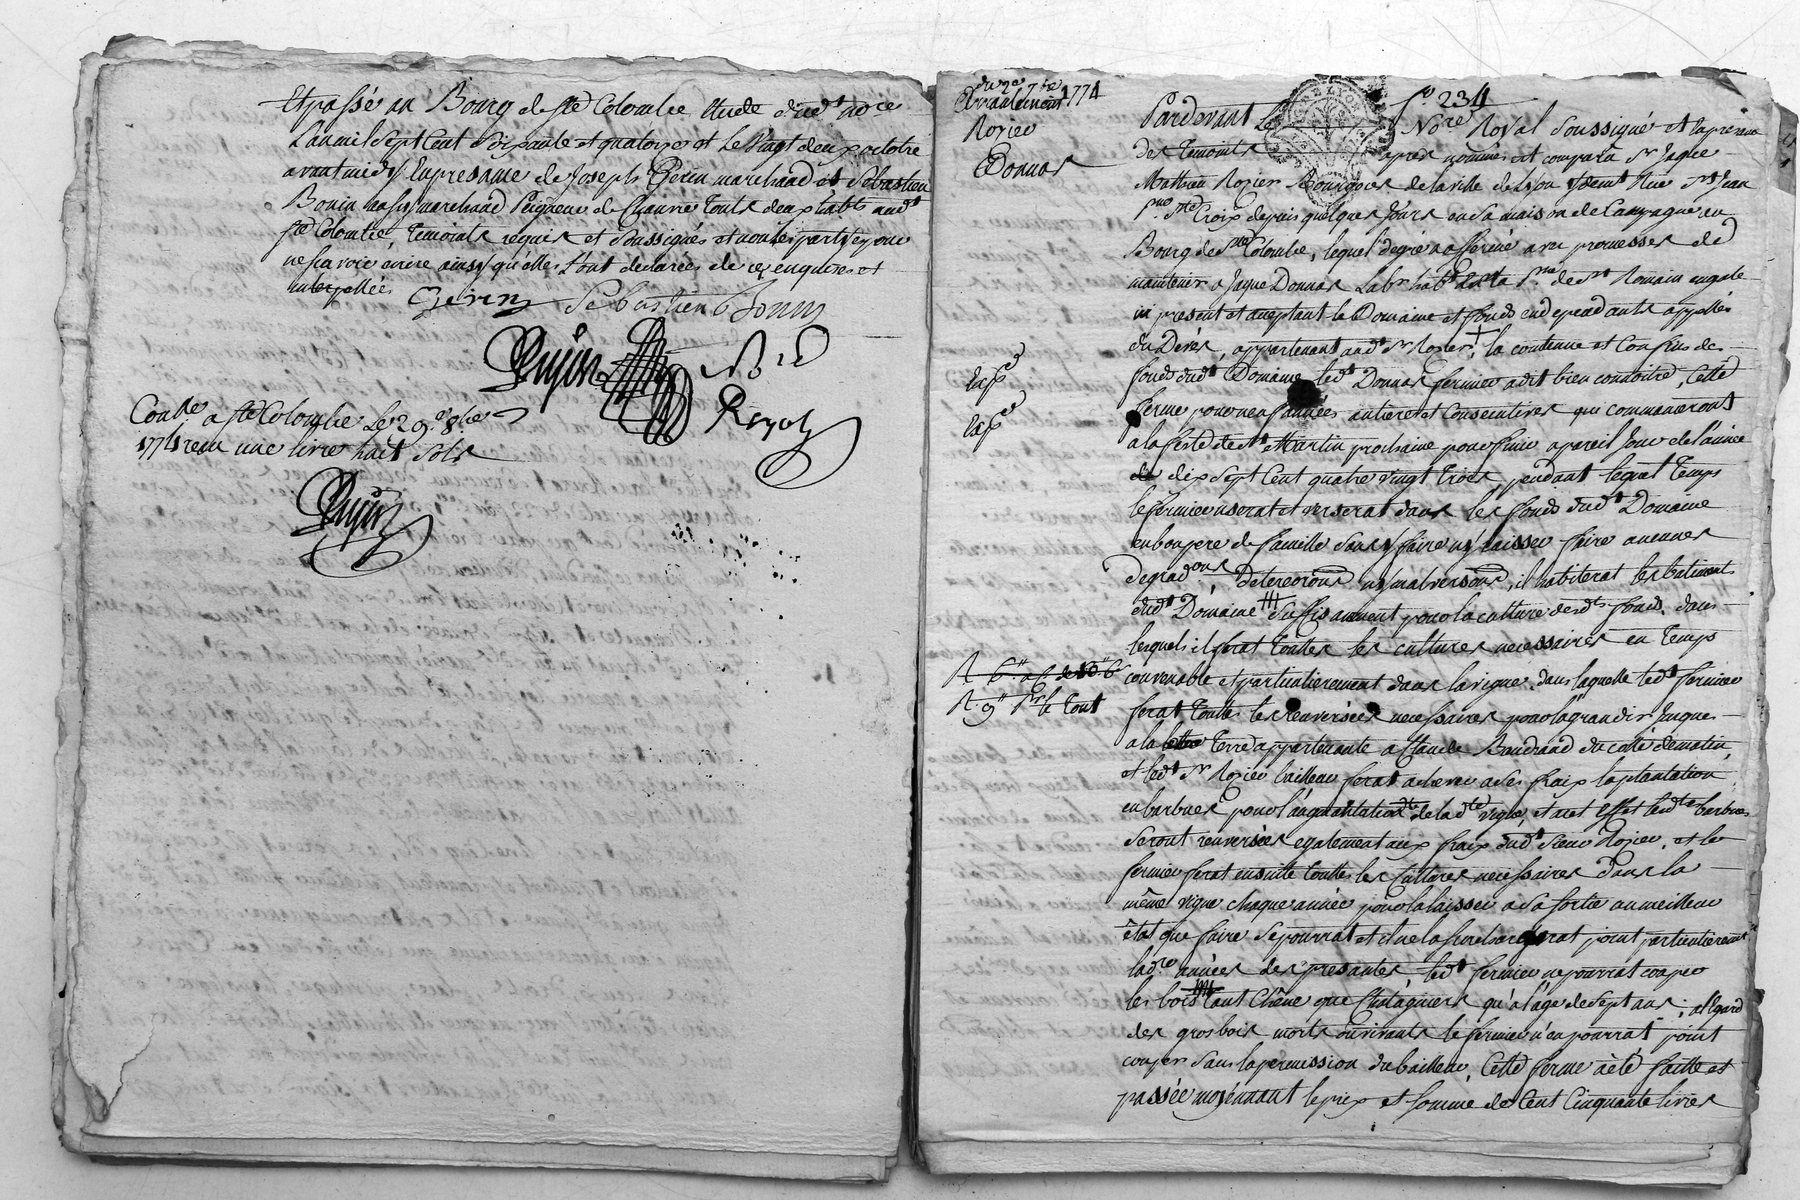 Et passé au Bourg de ste Colombe Etude dud.t no.re
L'an mil sept Cent soixante et quatorze et le vingt deux octobre
avant midy En presance de Joseph Gerin marchand et Sebastien
Bonin aussy marchand Peigneur de Chanvre touts deux habts aud.t
ste Colombe, temoints requis et soussignés et non les parties pour
ne scavoir ecrire ainsy qu'elles l'ont declarées de ce enquises et
interpellées
Gerin Sebastien Bonin
Dujin
Reçu
Con.lle a ste Colombe Le 29.e 8bre
1774 recu une livre huit sols
Dujin
du 2e 7bre
1774
Rozier
Donnas
f.o 234
Pardevant Le No.re Royal soussigné et la presence
des temoints apres nommés est comparu Sr Jaque
Matthieu Rozier Bourgeois de la ville de Lyon y demt Rue St Jean
p.sse Ste Croix depuis quelques Jours en sa maison de Campagne au
Bourg de Ste Colombe, lequel de gré a affermé avec promesses de
maintenir a Jaque Donnas Lab.r hab.t de la p.sse de St Romain en gale
icy present et acceptant le Domaine et fonds en dependants appellés
du Deves, appartenant aud.t Sr Rozier, la contenue et confins des
fonds dud.t Domaine led.t Donnas fermier a dit bien connoitre, Cette
ferme pour neuf années entieres et Consecutives qui commanceront
a la feste de St Martin prochaine pour finir a pareil Jour de l'année
de dix sept Cent quatre vingt trois pendant lequel temps
le fermier userat et verserat dans les fonds dud.t Domaine
en bon pere de famille sans y faire ny laisser faire aucunes
degradons, Detereorons ny malversons, il habiterat les batiments
dud.t Domaine suffisamment pour la culture desd.ts fonds, dans
lesquels il ferat touttes les cultures necessaires en temps
convenable et particulierement dans la vigne, dans laquelle led.t fermier
ferat touttes les renversées necessaires pour l'agrandir Jusques
a la terre appartenante a Claude Baudrand du cotté de matin,
et led.t Sr Rozier bailleur ferat achever a ses fraix la plantation
en barbues pour l'augmentation de lad.te vigne, et a cet effet lesd.tes barbues
seront renversées egalement aux fraix dud.t Sieur Rozier, et le
fermier ferat ensuite touttes les Cultures necessaires Dans la
même vigne chaque année pour la laisser a sa sortie au meilleur
état que faire se pourrat et il ne la surchargerat point particulierement
la dre années des presantes led.t fermier ne pourrat couper
les bois tant Chêne que Chatagniers qu'a l'age de sept ans; a l'Egard
des gros bois morts ou vivants le fermier n'en pourrat point
couper sans la permission du bailleur. Cette ferme a été faitte et
passée moyennant le prix et somme de Cent Cinquante livres
R. 9.s p.r le tout